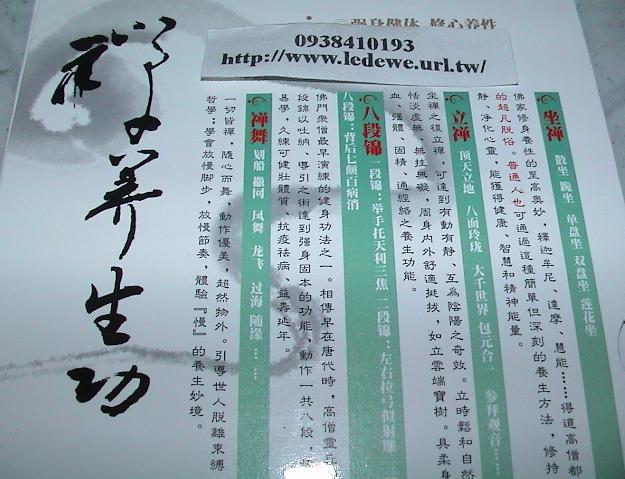 强身健体 修心养性
0938410193
http://www.ledewe.url.tw/
坐禅 散坐 跪坐 单盘坐 双盘坐 莲花坐
佛家修身養性的至高奧妙，釋迦牟尼、達摩、慧能……得道高僧都
的超凡脱俗，普通人也可通過這種簡單但深刻的養生方法，修持
靜、淨化心靈，能獲得健康、智慧和精神能量。
立禅 顶天立地 八面玲珑 大千世界 包元合一 参拜观音
坐禪之後立禪，可達到有動有靜、互為陰陽之奇效。立時鬆和自然
恬淡虛無，無挂無礙，周身內外舒適挺拔，如立雲端寶樹。具柔身
血、強體、固精、通經絡之養生功能。
八段锦 一段锦：举手托天利三焦 二段锦：左右拉弓似射雕
八段锦：背后七颠百病消
佛門衆僧最早演練的健身功法之一。相傳早在唐代時，高僧靈
段錦以吐納、導引之術達到強身固本的功能，動作一共八段，
易學，久練可健壯體質、抗疫祛病、益壽延年。
禅舞 划船 撒网 凤舞 龙飞 过海 随缘……
一切皆禪，隨心而舞，動作優美，超然物外。引導世人脱離束縛
哲學；學會放慢脚步，放慢節奏，體驗『慢』的養生妙境。
禅养生功